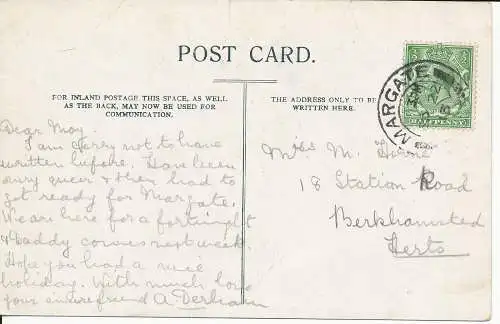 POST CARD.
FOR INLAND POSTAGE THIS SPACE, AS WELL
AS THE BACK, MAY NOW BE USED FOR
COMMUNICATION.
THE ADDRESS ONLY TO BE
WRITTEN HERE.
MARGATE
HALFPENNY
Dear May.
I am sorry not to have
written before. Have been
very queer & then had to
get ready for Margate.
We are here for a fortnight
& Daddy comes next week.
Hope you had a nice
holiday. With much love
your sincere friend A Derham
M. Horne
18 Station Road
Berkhamsted
Herts